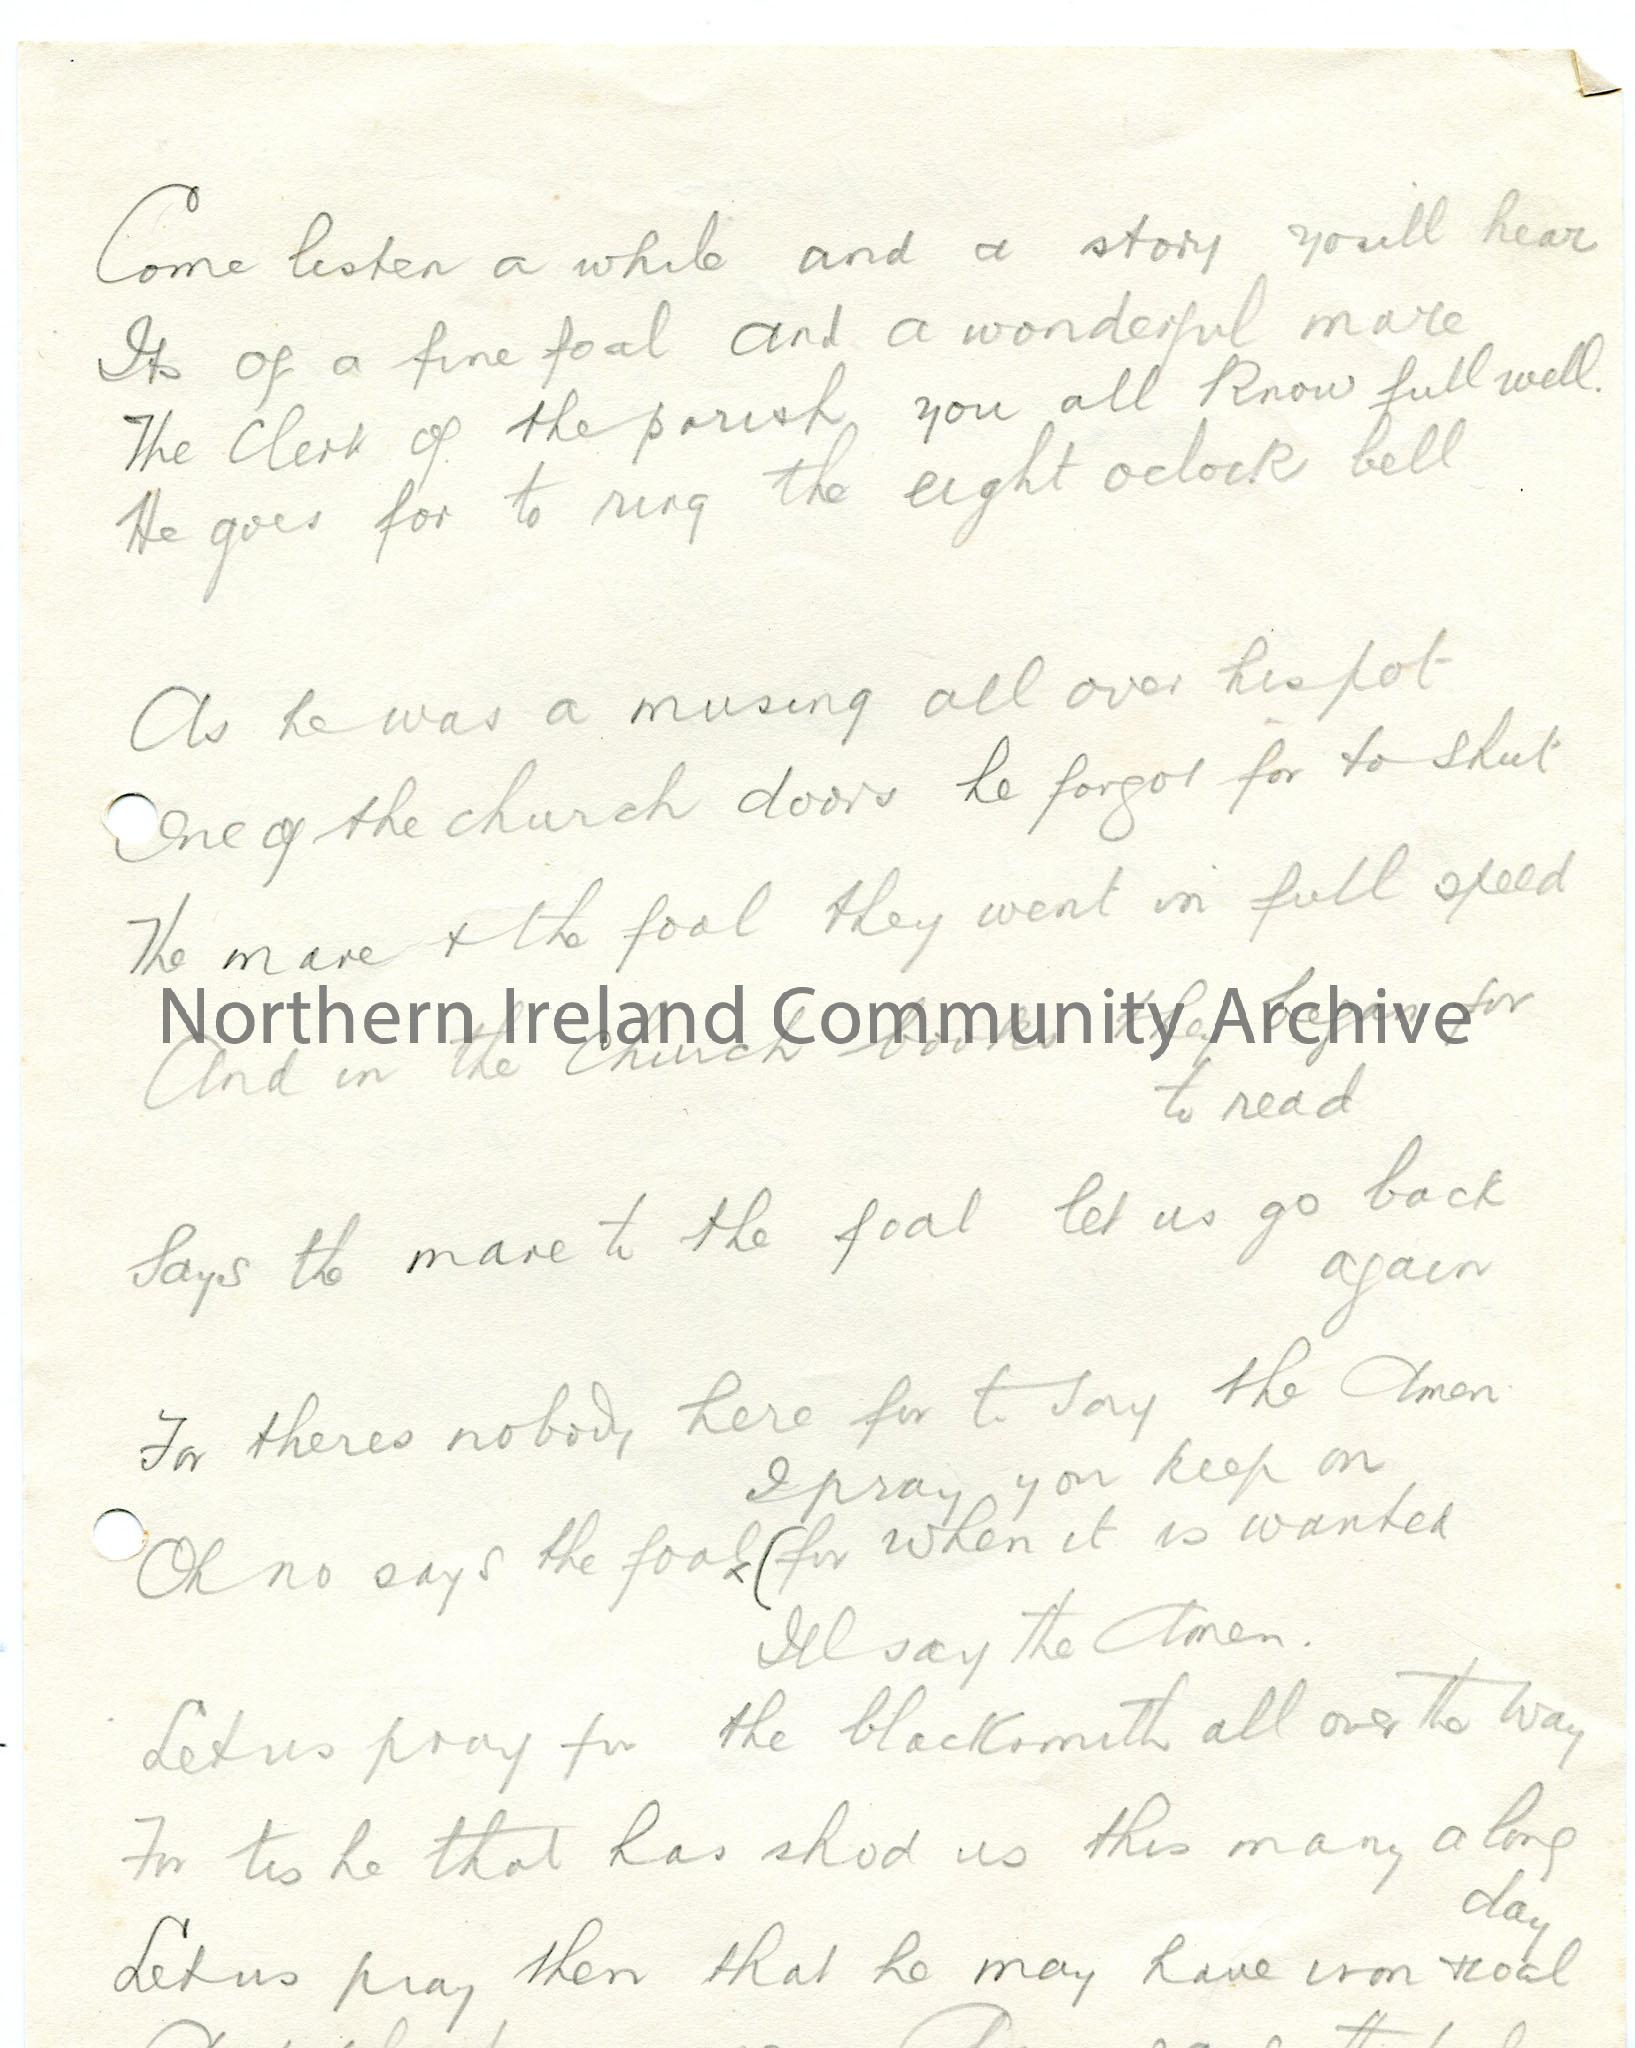 Come listen a while and a story you'll hear
Its of a fine foal and a wonderful mare
The Clerk of the parish you all know full well.
He goes for to ring the eight oclock bell
As he was a musing all over his pot
One of the church doors he forgot for to shut
The mare & the foal they went in full speed
Northern Ireland Community Archive
And in the Church books they began for
to read
Says the mare to the foal let us go back
again
For theres nobody here for to say the Amen
I pray you keep on
Oh no says the foal & (for when it is wanted
Ill say the Amen.
Let us pray for the blacksmith all over the way
For tis he that has shod us this many a long
day
Let us pray then that he may have iron & coal